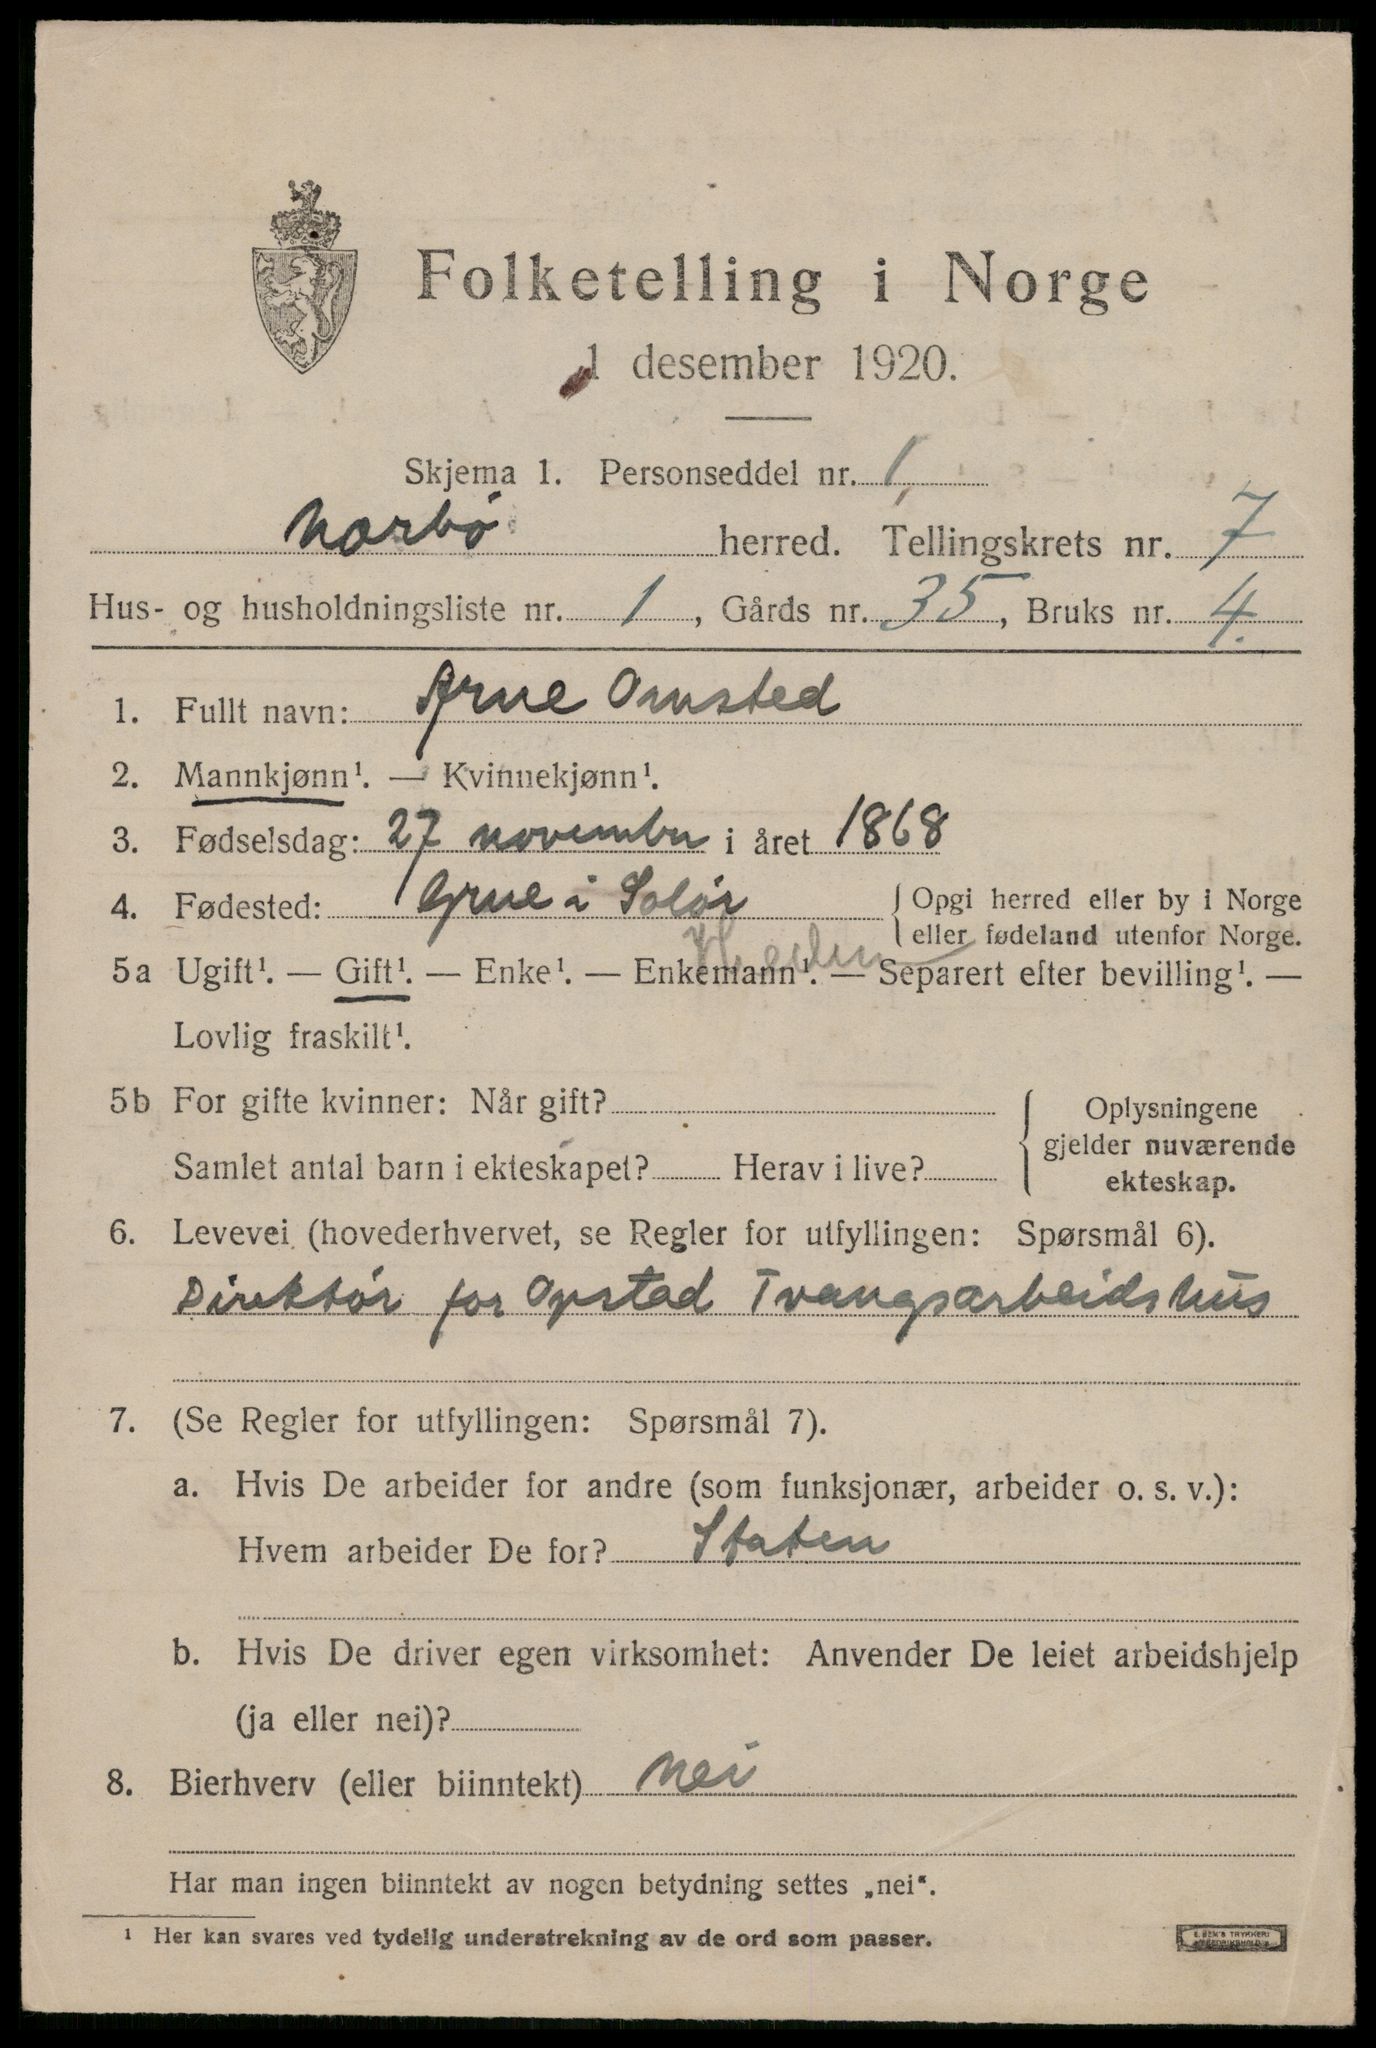 Folketelling i Norge
1 desember 1920.
Skjema 1. Personseddel nr. 1,
Nærbø herred. Tellingskrets nr. 7
Hus- og husholdningsliste nr. 1, Gårds nr. 35, Bruks nr. 4.
1. Fullt navn: Arne Omsted
2. Mannkjønn¹. — Kvinnekjønn¹.
3. Fødselsdag: 27 november i året 1868
4. Fødested: Grue i Solør { Opgi herred eller by i Norge
eller fødeland utenfor Norge.
Hedm
5a Ugift¹. — Gift¹. — Enke¹. — Enkemann¹. — Separert efter bevilling¹. —
Lovlig fraskilt¹.
5b For gifte kvinner: Når gift? { Oplysningene
gjelder nuværende
Samlet antal barn i ekteskapet? Herav i live?
ekteskap.
6. Levevei (hovederhvervet, se Regler for utfyllingen: Spørsmål 6).
Direktør for Opstad Tvangsarbeidshus
7. (Se Regler for utfyllingen: Spørsmål 7).
a. Hvis De arbeider for andre (som funksjonær, arbeider o. s. v.):
Hvem arbeider De for? Staten
b. Hvis De driver egen virksomhet: Anvender De leiet arbeidshjelp
(ja eller nei)?
8. Bierhverv (eller biinntekt) Nei
Har man ingen biinntekt av nogen betydning settes „nei“.
¹ Her kan svares ved tydelig understrekning av de ord som passer.
E. SEM'S TRYKKERI
FREDRIKSHALD